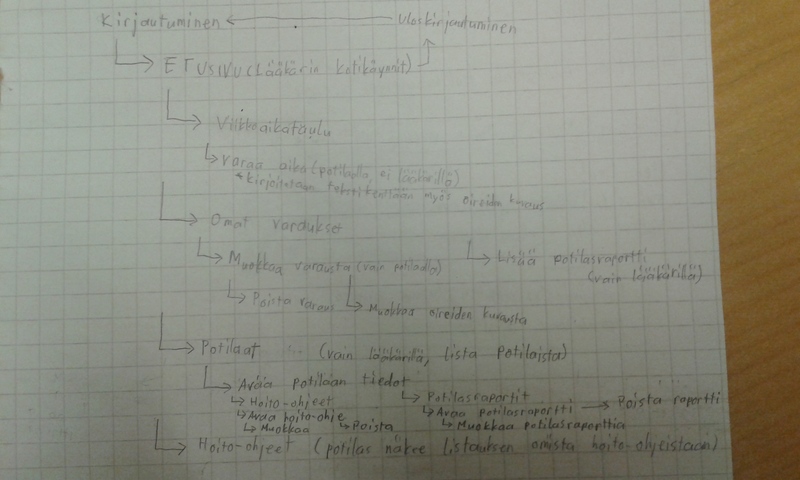 Kirjautuminen Uloskirjautuminen
ETUSIVU (Lääkärin kotikäynnit)
Viikkoaikataulu
Varaa aika (potilailla, ei lääkärillä)
* Kirjoitetaan tekstikenttään myös oireiden kuvaus
Omat varaukset
Muokkaa varausta (vain potilailla) Lisää potilasraportti
(vain lääkärillä)
Poista varaus Muokkaa oireiden kuvausta
Potilaat (vain lääkärillä, lista potilaista)
Avaa potilaan tiedot
Hoito-ohjeet Potilasraportit
Avaa hoito-ohje Avaa potilasraportti Poista raportti
Muokkaa Poista Muokkaa potilasraporttia
Hoito-ohjeet (potilas näkee listauksen omista hoito-ohjeistaan)